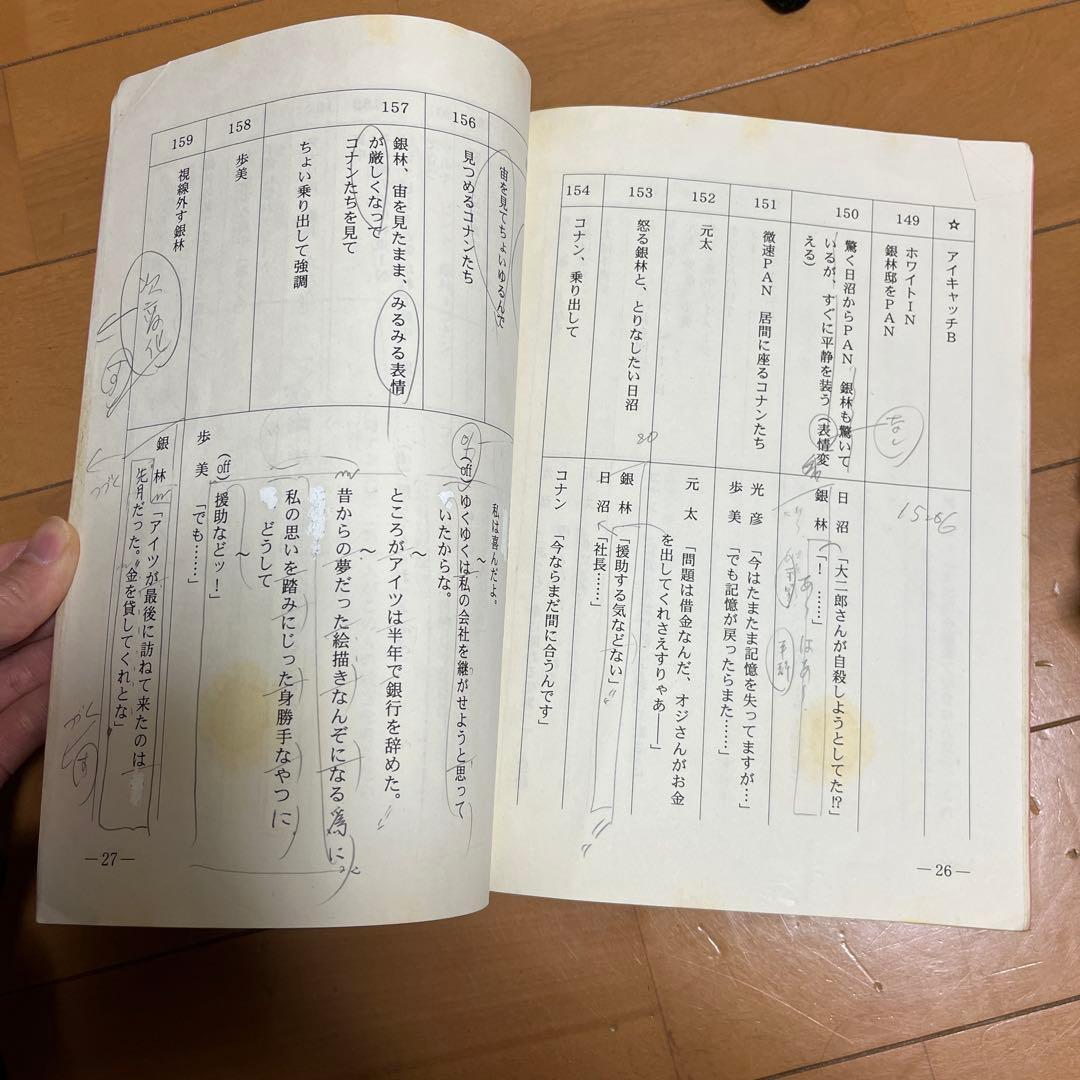 ☆
アイキャッチB
149
ホワイトIN
銀林邸をPAN
なし
15206
150
驚く日沼からPAN、銀林も驚いて
いるが、すぐに平静を装う(表情変
える)
日沼「大二郎さんが自殺しようとしてた!?」
銀林「!……」
151
微速PAN 居間に座るコナンたち
光彦「今はたまたま記憶を失ってますが…」
歩美「でも記憶が戻ったらまた……」
152
元太
元太「問題は借金なんだ、オジさんがお金
を出してくれさえすりゃあ―」
153
怒る銀林と、とりなしたい日沼
銀林「援助する気などない」
日沼「社長……」
154
コナン、乗り出して
コナン「今ならまだ間に合うんです」
―26―
宙を見てちょいゆるんで
私は喜んだよ。
〜
156
見つめるコナンたち
(off)ゆくゆくは私の会社を継がせようと思って
いたからな。
〜
157
銀林、宙を見たまま、みるみる表情
が厳しくなって
コナンたちを見て
ちょい乗り出して強調
ところがアイツは半年で銀行を辞めた。
〜
昔からの夢だった絵描きなんぞになる為に。
〜
私の思いを踏みにじった身勝手なやつに
どうして
〜
(off)援助などッ!」
158
歩美
歩美「でも……」
159
視線外す銀林
銀林「アイツが最後に訪ねて来たのは
先月だった。〝金を貸してくれとな」
―27―